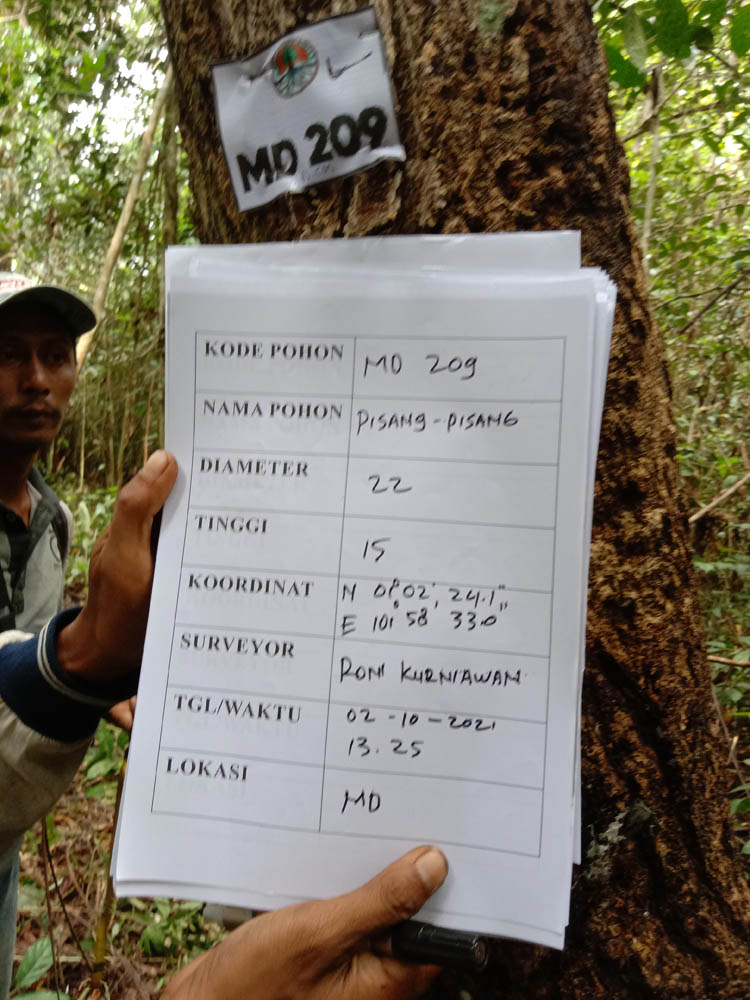 MD 209
KODE POHON MD 209
NAMA POHON PISANG-PISANG
DIAMETER 22
TINGGI 15
KOORDINAT N 01° 02' 24.1"
E 101° 58' 33.0"
SURVEYOR RONI KURNIAWAN
TGL/WAKTU 02-10-2021
13.25
LOKASI MD